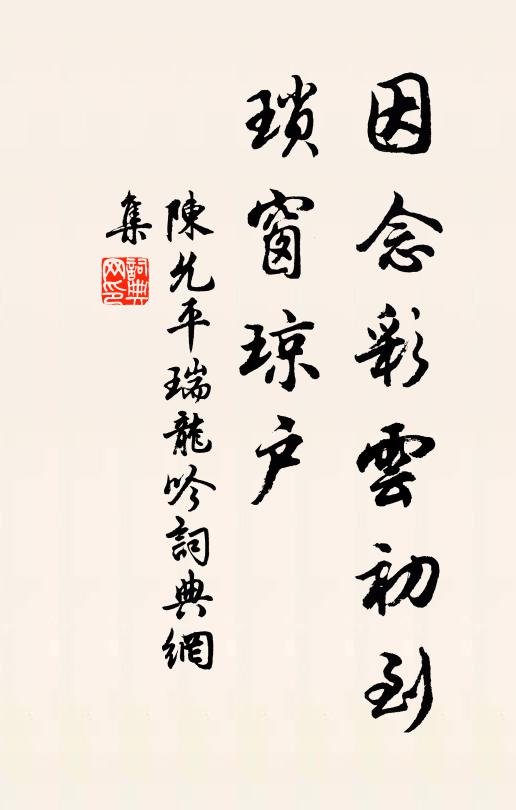 因念彩雲初到
瑣窗琼户
陳允平瑞龍吟詞典網
集
詞典
网印